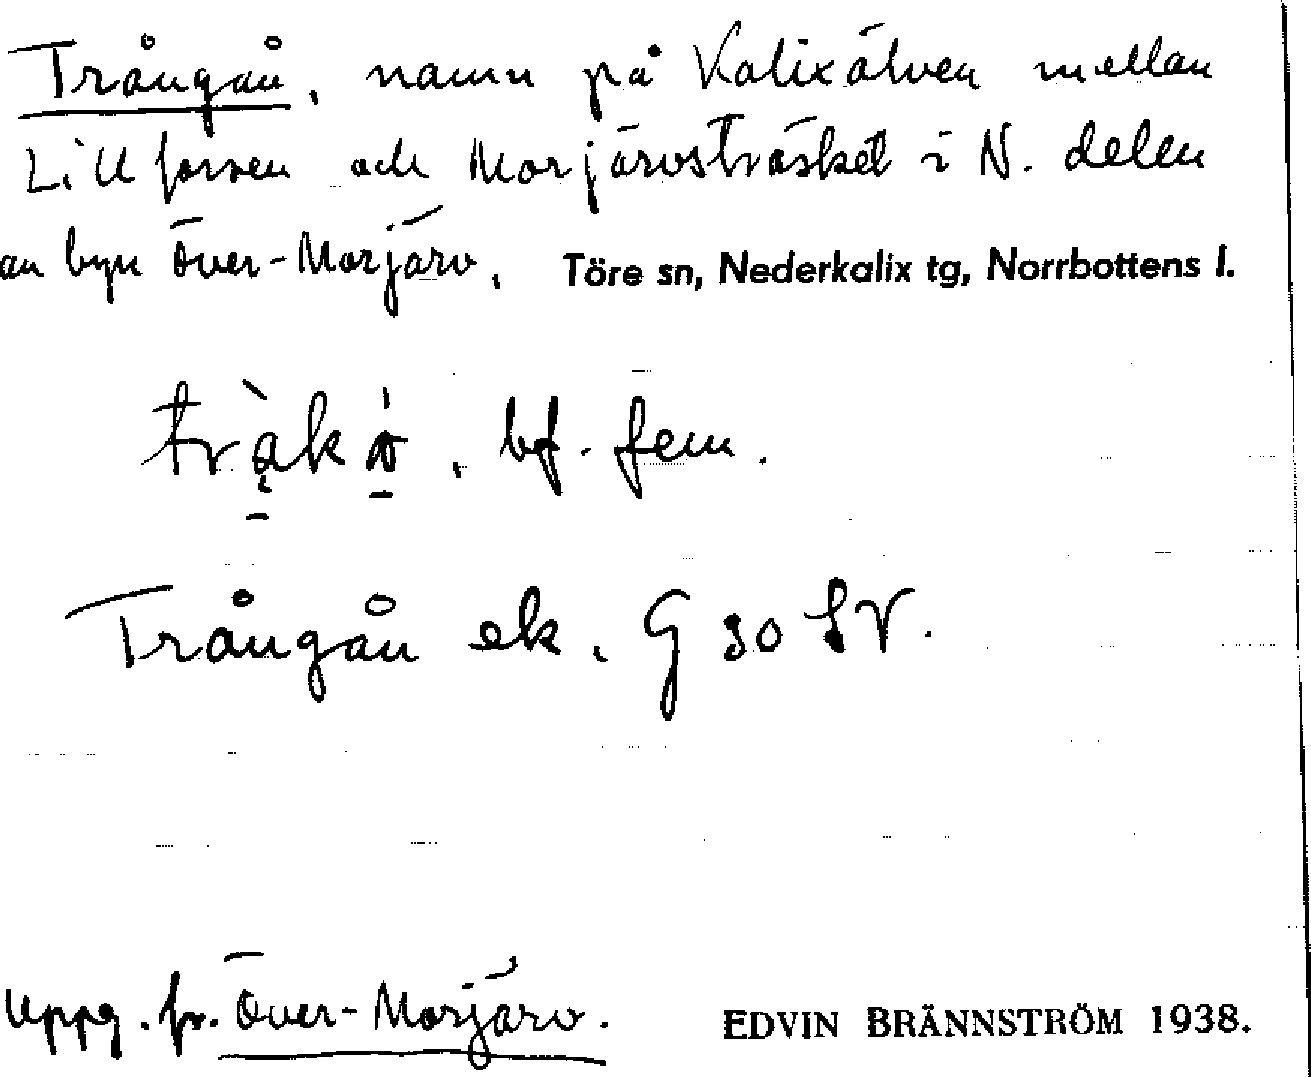 Trångån, namn på Kalixälven mellan
Lillforsen och Morjärvsträsket i N. delen
av byn Över-Morjärv. Töre sn, Nederkalix tg, Norrbottens l.
bf. fem.
Trångån ek. G 30 SV.
Uppg. fr. Över-Morjärv. EDVIN BRÄNNSTRÖM 1938.